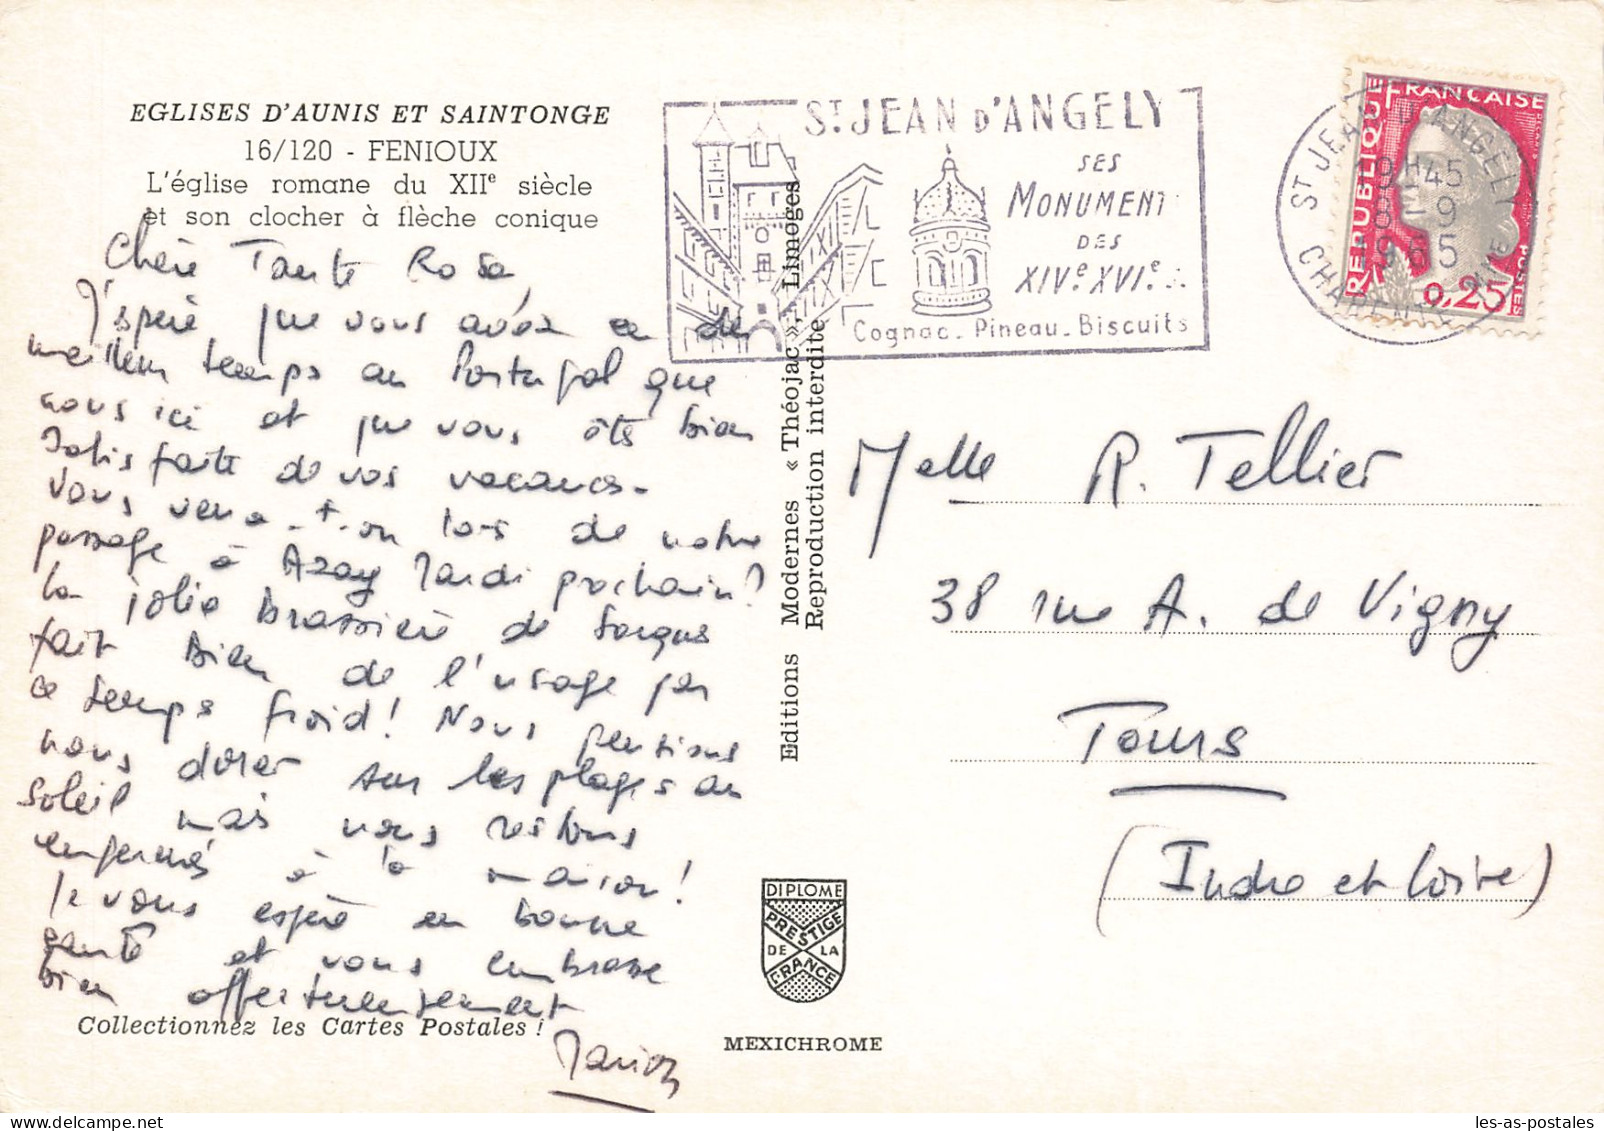 EGLISES D'AUNIS ET SAINTONGE
16/120 - FENIOUX
L'église romane du XIIe siècle
et son clocher à flèche conique
Chère Tante Rosa,
J'espère que vous avez eu de
meilleur temps au Portugal que
nous ici et que vous êtes bien
satisfaite de vos vacances.
Vous verra-t-on lors de notre
passage à Azay Mardi prochain?
la jolie brassière de
fait bien de l'usage par
ce temps froid! Nous pensions
nous dorer sur les plages au
soleil mais nous restons
enfermés à la maison!
Je vous espère en bonne
santé et vous embrasse
bien affectueusement
Marion
Collectionnez les Cartes Postales !
Editions Modernes « Théojac », Limoges
Reproduction interdite
DIPLOME
PRESTIGE
DE LA
FRANCE
MEXICHROME
ST JEAN D'ANGELY
SES
MONUMENTS
DES
XIVe XVIe S.
Cognac - Pineau - Biscuits
ST JEAN D'ANGELY
19H45
8 - 9
1965
CHARENTE MME
REPUBLIQUE FRANCAISE
POSTES
0,25
Melle R. Tellier
38 rue A. de Vigny
Tours
(Indre et Loire)
les-as-postales